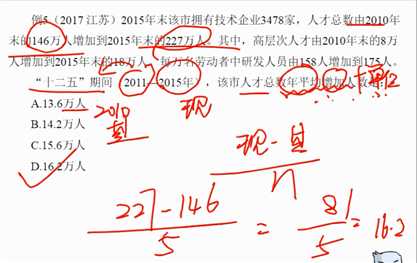 例5（2017 江苏）2015年末该市拥有技术企业3478家，人才总数由2010年
末的146万人增加到2015年末的227万人。其中，高层次人才由2010年末的8万
人增加到2015年末的18万人，每万名劳动者中研发人员由158人增加到175人。
“十二五”期间（2011—2015年），该市人才总数年平均增加
A.13.6万人
B.14.2万人
C.15.6万人
D.16.2万人
2010
现
现-基
n
227-146
5
=
81
5
=16.2